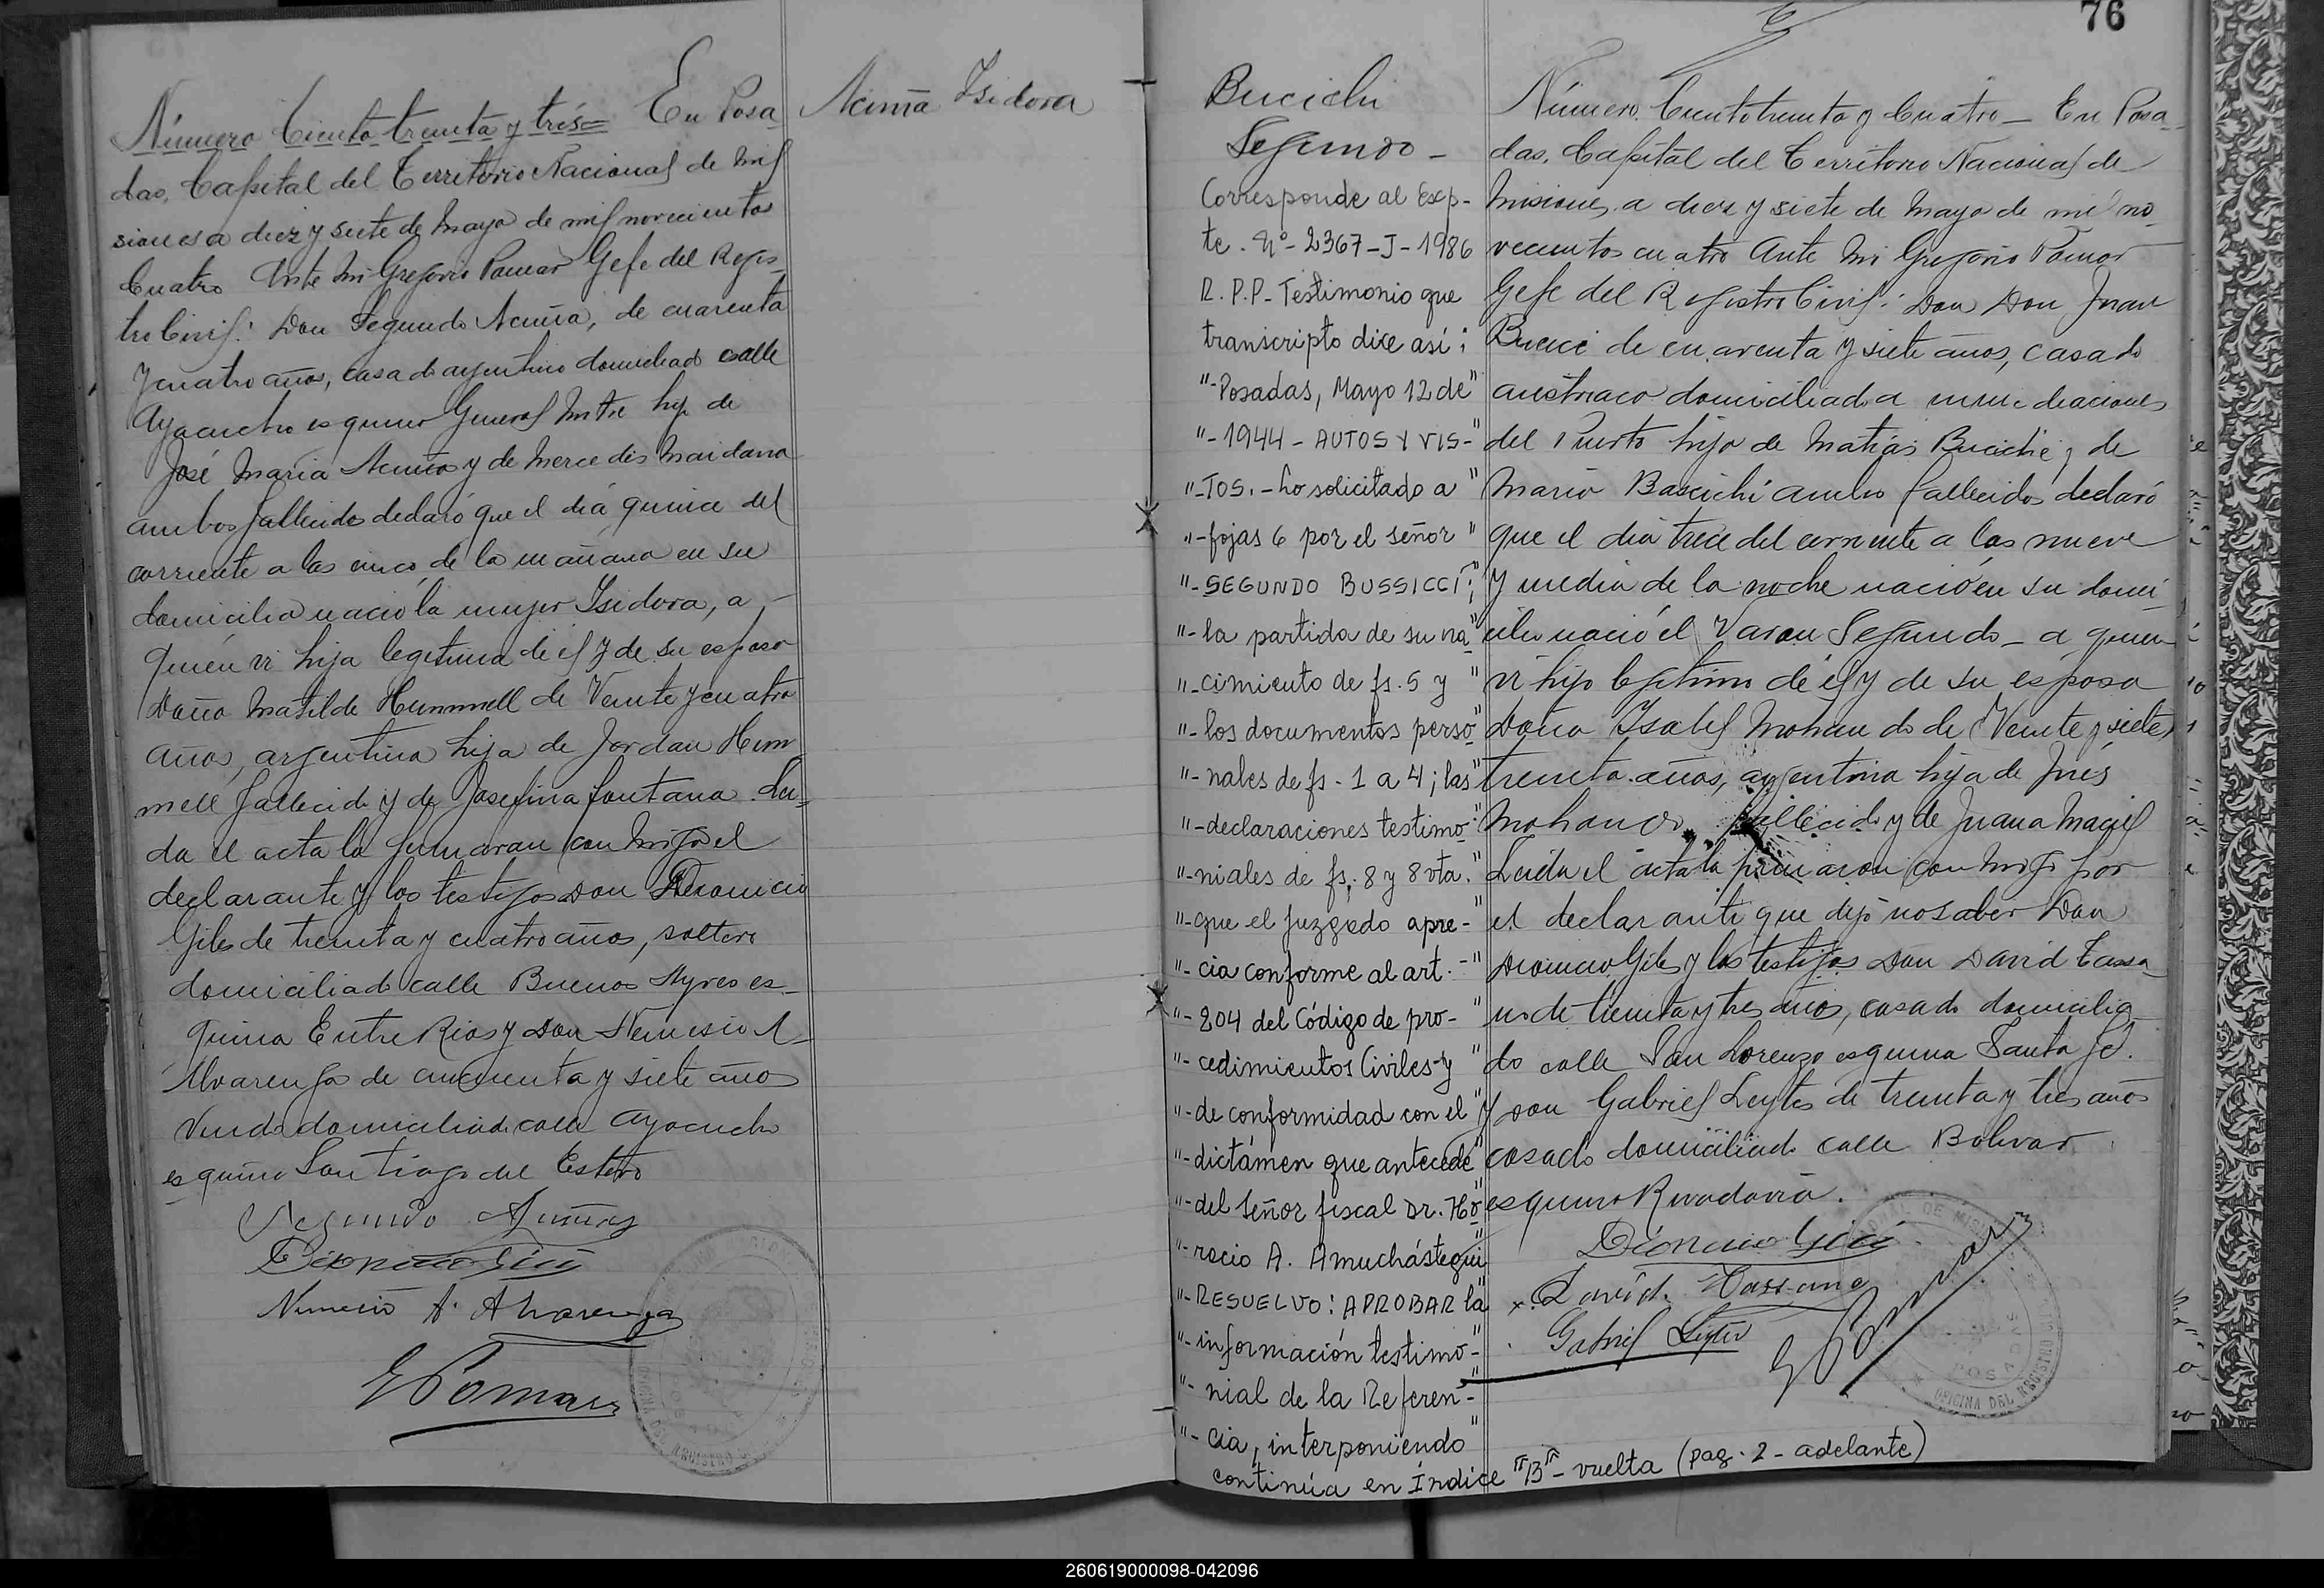 Número Ciento treinta y trés= En Posa
das, Capital del Territorio Nacional de Mi
siones a diez y siete de Mayo de mil novecientos
Cuatro Ante Mi Gregorio Pomar Gefe del Regis-
tro Civil: Don Segundo Acuña, de cuarenta
y cuatro años, casado argentino domiciliado calle
Ayacucho esquina General Mitre hijo de
José Maria Acuña y de Mercedes Maidana
ambos fallecidos declaró que el dia quince del
corriente a las cinco de la mañana en su
domicilio nació la mujer Isidora, a
quién vi hija legitima de el y de su esposa
Doña Matilde Hummell de Veinte y cuatro
años, argentina hija de Jordan Hum
mell fallecido y de Josefina Fontana. Lei-
da el acta la firmaron con migo el
declarante y los testigos Don Dionicio
Giles de treinta y cuatro años, soltero
domiciliado calle Buenos Ayres es-
quina Entre Rios y Don Nemesio A
Alvarenga de cincuenta y siete años
Viudo domiciliado calle Ayacucho
esquina Santiago del Estero
Segundo Acuña
Dionicio Giles
Nemecio A. Alvarenga
G Pomar
Acuña Isidora
76
Bucichi
Segundo -
Corresponde al Exp-
te. Nº- 2367-J-1986
R.P.P- Testimonio que
transcripto dice así:
"-Posadas, Mayo 12 de"
"-1944- AUTOS Y VIS-"
"-TOS.- Lo solicitado a"
"-fojas 6 por el señor"
"-SEGUNDO BUSSICCI;"
"-la partida de su na"
"-cimiento de fs. 5 y"
"-los documentos perso"
"-nales de fs- 1 a 4; las"
"-declaraciones testimo-"
"-niales de fs; 8 y 8 vta."
"-que el juzgado apre-"
"-cia conforme al art.-"
"-204 del Código de pro-"
"-cedimientos Civiles-y"
"-de conformidad con el"
"-dictámen que antecede"
"-del señor fiscal Dr. Ho"
"-racio A. Amuchástegui"
"-RESUELVO: APROBAR la"
"-información testimo-"
"-nial de la Referen-"
"-cia, interponiendo"
continúa en Índice "B"- vuelta (pag. 2 - adelante)
Número. Ciento treinta y Cuatro- En Posa-
das, Capital del Territorio Nacional de
Misiones, a diez y siete de Mayo de mil no-
vecientos cuatro Ante Mi Gregorio Pomar
Gefe del Registro Civil: Don Don Juan
Bucici de cuarenta y siete años, casado
austriaco domiciliado a inmediaciones
del Puerto hijo de Matias Bucichi y de
Maria Bascichi ambos fallecidos declaró
que el dia trece del corriente a las nueve
y media de la noche nació en su domi-
cilio nació el Varon Segundo- a quien
vi hijo legitimo de él y de su esposa
Doña Isabel Mohando de Veinte y siete
treinta años, argentina hija de Inés
Mohando, fallecido y de Juana Maciel
Leida el acta la firmaron con migo por
el declarante que dijó no saber Don
Dionicio Giles y los testigos Don David Cassa-
no de treinta y tres años, casado domicilia-
do calle San Lorenzo esquina Santa Fé.
y Don Gabriel Leytes de treinta y tres años
casado domiciliado calle Bolivar
esquina Rivadavia.
Dionicio Giles
David Cassano
Gabriel Leytes
G Pomar
OFICINA DEL REGISTRO
POSADAS
260619000098-042096